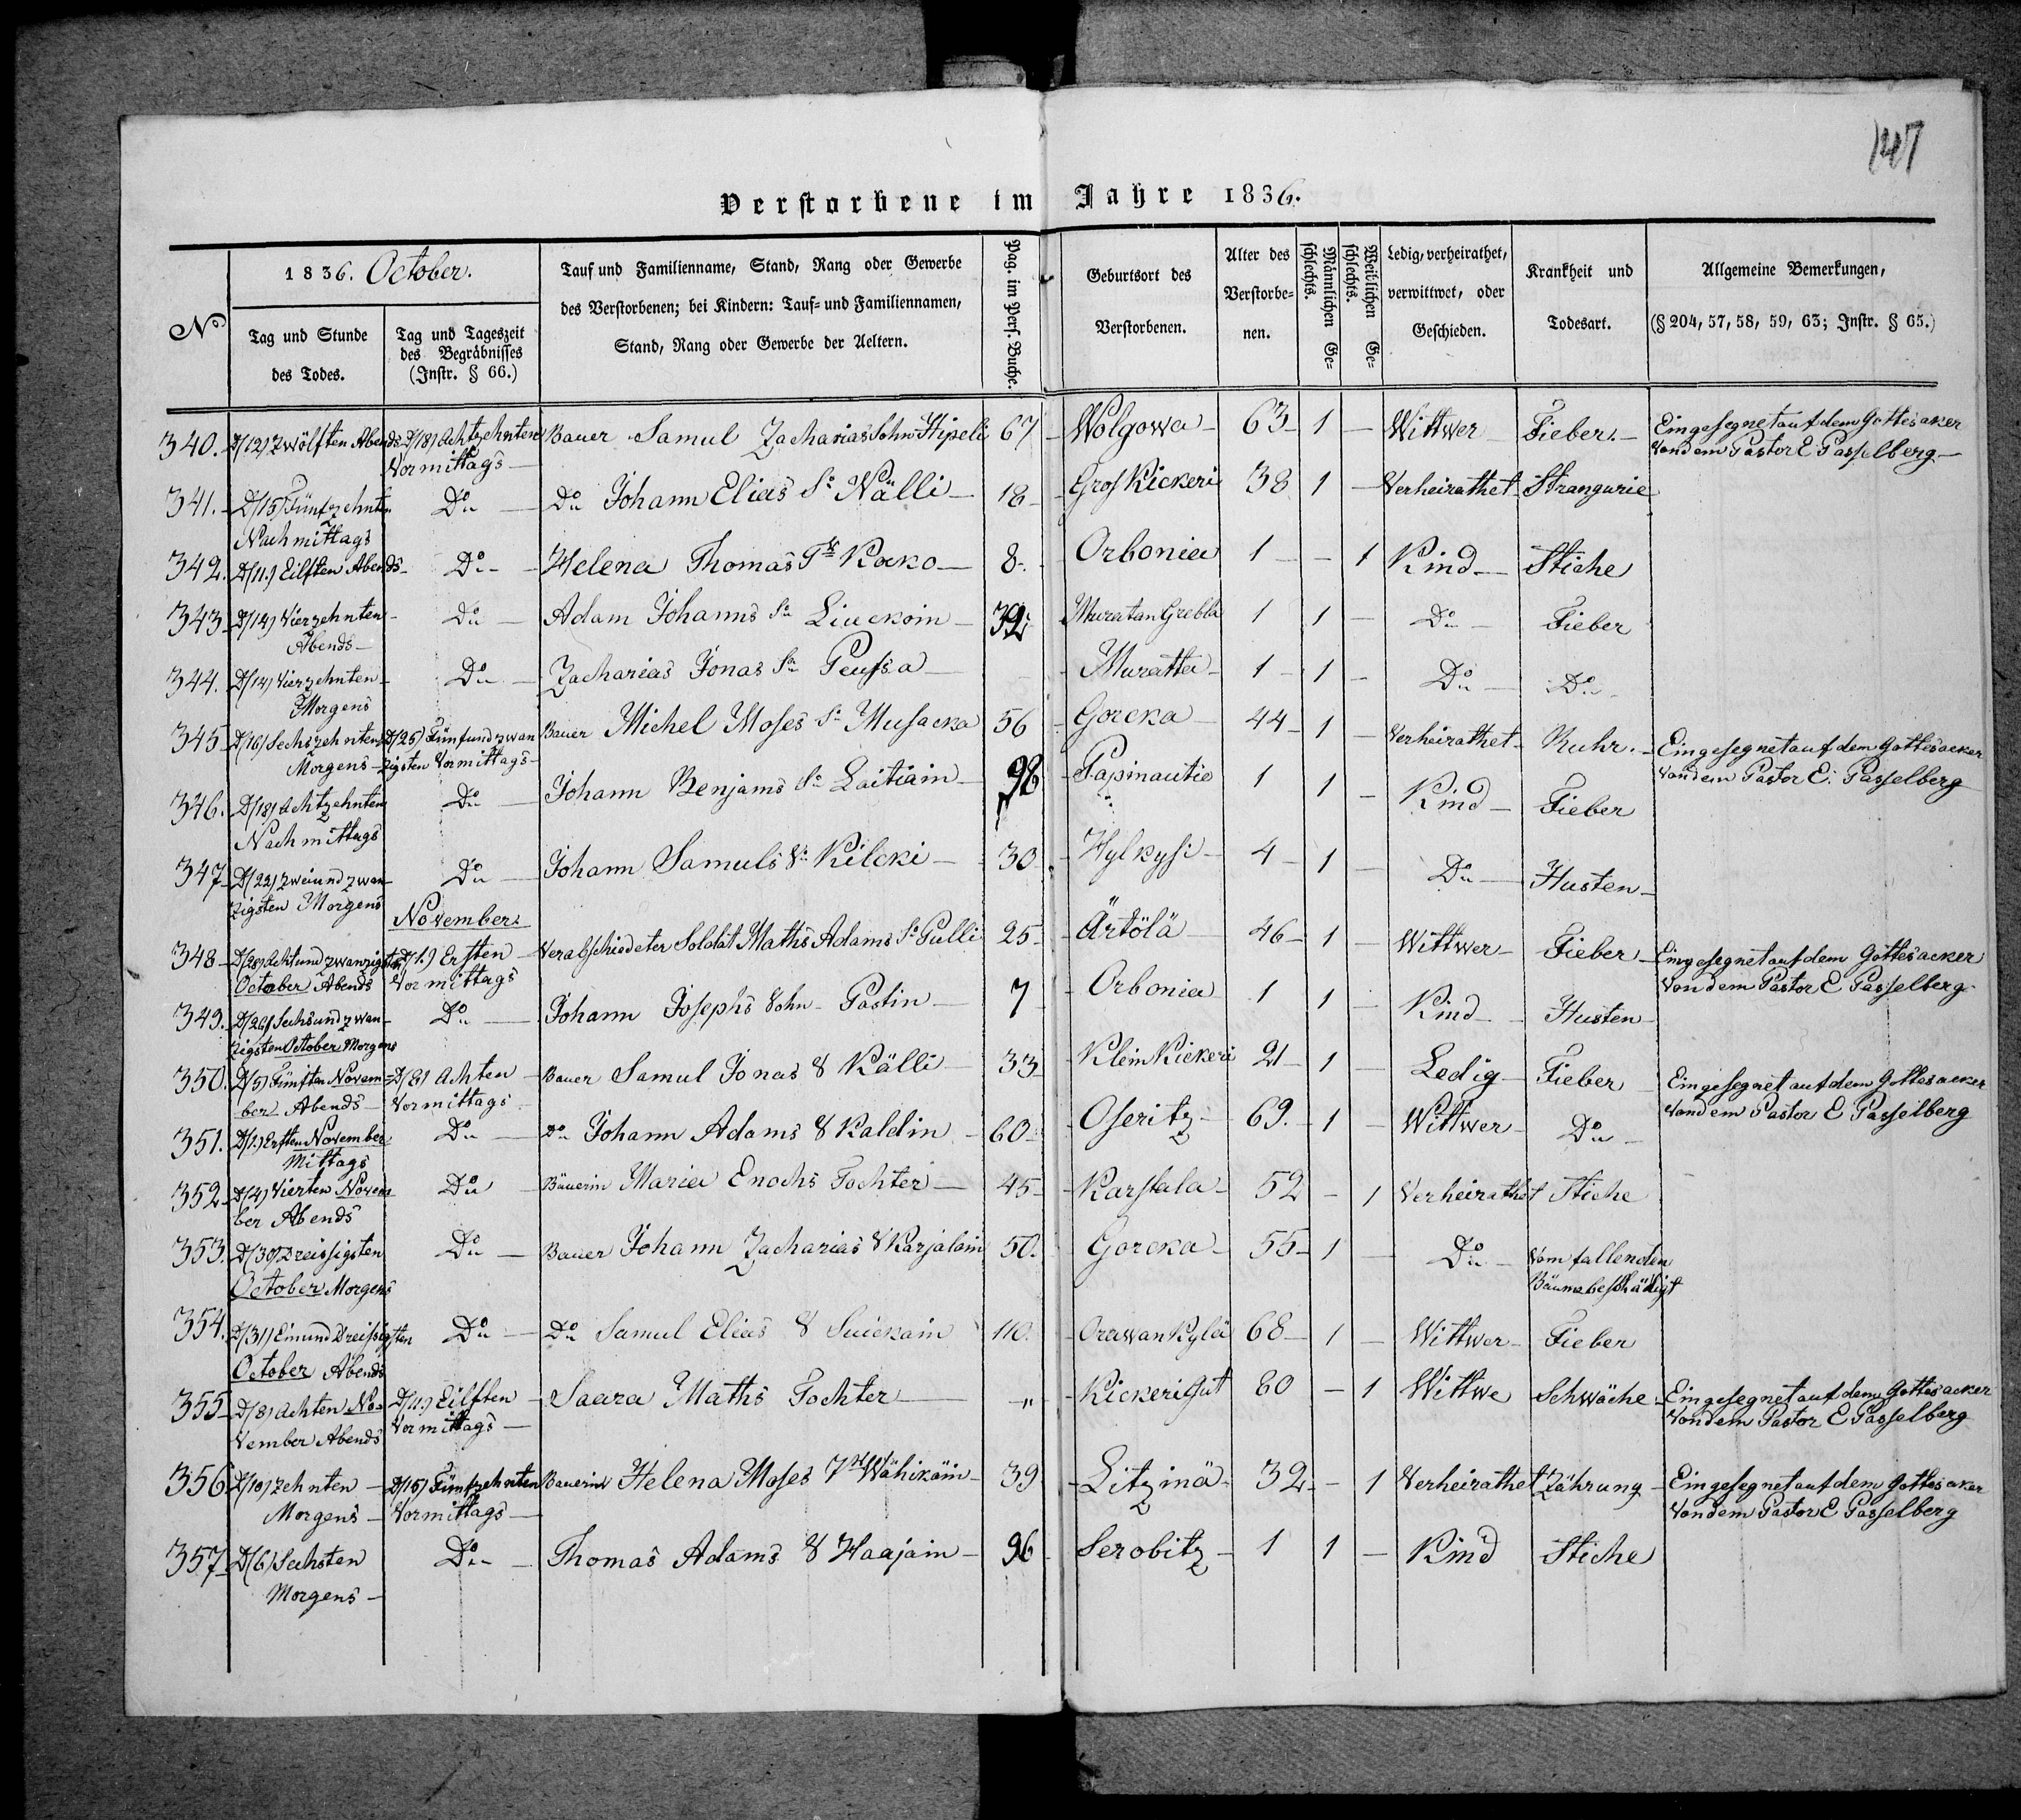 147
Verstorbene im Jahre 1836.
No
1836. October.
Tag und Stunde des Todes.
Tag und Tageszeit des Begräbnisses (Instr. § 66.)
Tauf und Familienname, Stand, Rang oder Gewerbe des Verstorbenen; bei Kindern: Tauf- und Familiennamen, Stand, Rang oder Gewerbe der Aeltern.
Pag. im Pers. Buche.
Geburtsort des Verstorbenen.
Alter des Verstorbenen.
Männlichen Geschlechts.
Weiblichen Geschlechts.
Ledig, verheirathet, verwittwet, oder Geschieden.
Krankheit und Todesart.
Allgemeine Bemerkungen, (§ 204, 57, 58, 59, 63; Instr. § 65.)
340. D/12) Zwölften Abends D/18) Achtzehnten Bauer Samul Zacharias Sohn Hipeli 67 Wolgowa 63 1 — Wittwer Fieber. Eingesegnet auf dem Gottesaker
Vormittags von dem Pastor E Passelberg
341. D/15) Fünfzehnten Do Do Johann Elias Sn Wälli 18 Gros Kickeri 38 1 — Verheirathet Strangurie
Nachmittags
342. D/11.) Eilften Abends Do Helena Thomas Tr Kocko 8. Orbonia 1 — 1 Kind Stiche
343 D/14) Vierzehnten Do Adam Johanns Sn Liuckoin 32 Muratan Grebla 1 1 — Do Fieber
Abends
344. D/14) Vierzehnten Do Zacharias Jonas Sn Peussa Muratta 1 1 — Do Do
Morgens
345 D/16) Sechszehnten D/25) Fünfundzwan Bauer Michel Moses Sn Musacka 56 Gorcka 44 1 — Verheirathet Ruhr. Eingesegnet auf dem Gottesacker
Morgens zigsten Vormittags von dem Pastor E. Passelberg
346. D/18) Achtzehnten Do Johann Benjams Sn Laitiain 98 Papinautio 1 1 — Kind Fieber
Nachmittags
347 D/22) Zweiundzwan Do Johann Samuls Sn Kilcki 30 Hylkysi 4 1 — Do Husten
zigsten Morgens
November.
348 D/28) Achtundzwanzigsten D/1.) Ersten Verabschiedeter Soldat Maths Adams Sn Pulli 25 Ärtölä 46 1 — Wittwer Fieber Eingesegnet auf dem Gottesacker
October Abends Vormittags von dem Pastor E Passelberg
349. D/26) Sechsundzwan Do Johann Josephs Sohn Pastin 7 Orbonia 1 1 — Kind Husten
zigsten October Morgens
350. D/5) Fünften Novem D/8) Achten Bauer Samul Jonas S Källi 33 Klein Kickeri 21 1 — Ledig Fieber Eingesegnet auf dem Gottesacker
ber Abends Vormittags von dem Pastor E Passelberg
351. D/1.) Ersten November Do Do Johann Adams S Kaldin 60 Oseritz 69. 1 — Wittwer Do
Mittags
352 D/4) Vierten Novem Do Bäuerin Maria Enochs Tochter 45 Karstala 52 — 1 Verheirathet Stiche
ber Abends
353. D/30) Dreissigsten Do Bauer Johann Zacharias S Karjalain 50. Gorcka 55 1 — Do Vom fallenden
October Morgens Baume beschädigt
354. D/31) Einund Dreissigsten Do Do Samul Elias S Suickain 110. Orawan Kylä 68 1 — Wittwer Fieber
October Abends
355 D/8) Achten No D/11.) Eilften Saara Maths Tochter " Kickeri Gut 80 — 1 Wittwe Schwäche Eingesegnet auf dem Gottesacker
vember Abends Vormittags von dem Pastor E Passelberg
356 D/10) Zehnten D/15) Fünfzehnten Bauerin Helena Moses Tr Wähikäin 39 Litzinä 32 — 1 Verheirathet Zährung Eingesegnet auf dem Gottesaker
Morgens Vormittags von dem Pastor E Passelberg
357 D/6) Sechsten Do Thomas Adams S Haajain 96 Serobitz 1 1 — Kind Stiche
Morgens